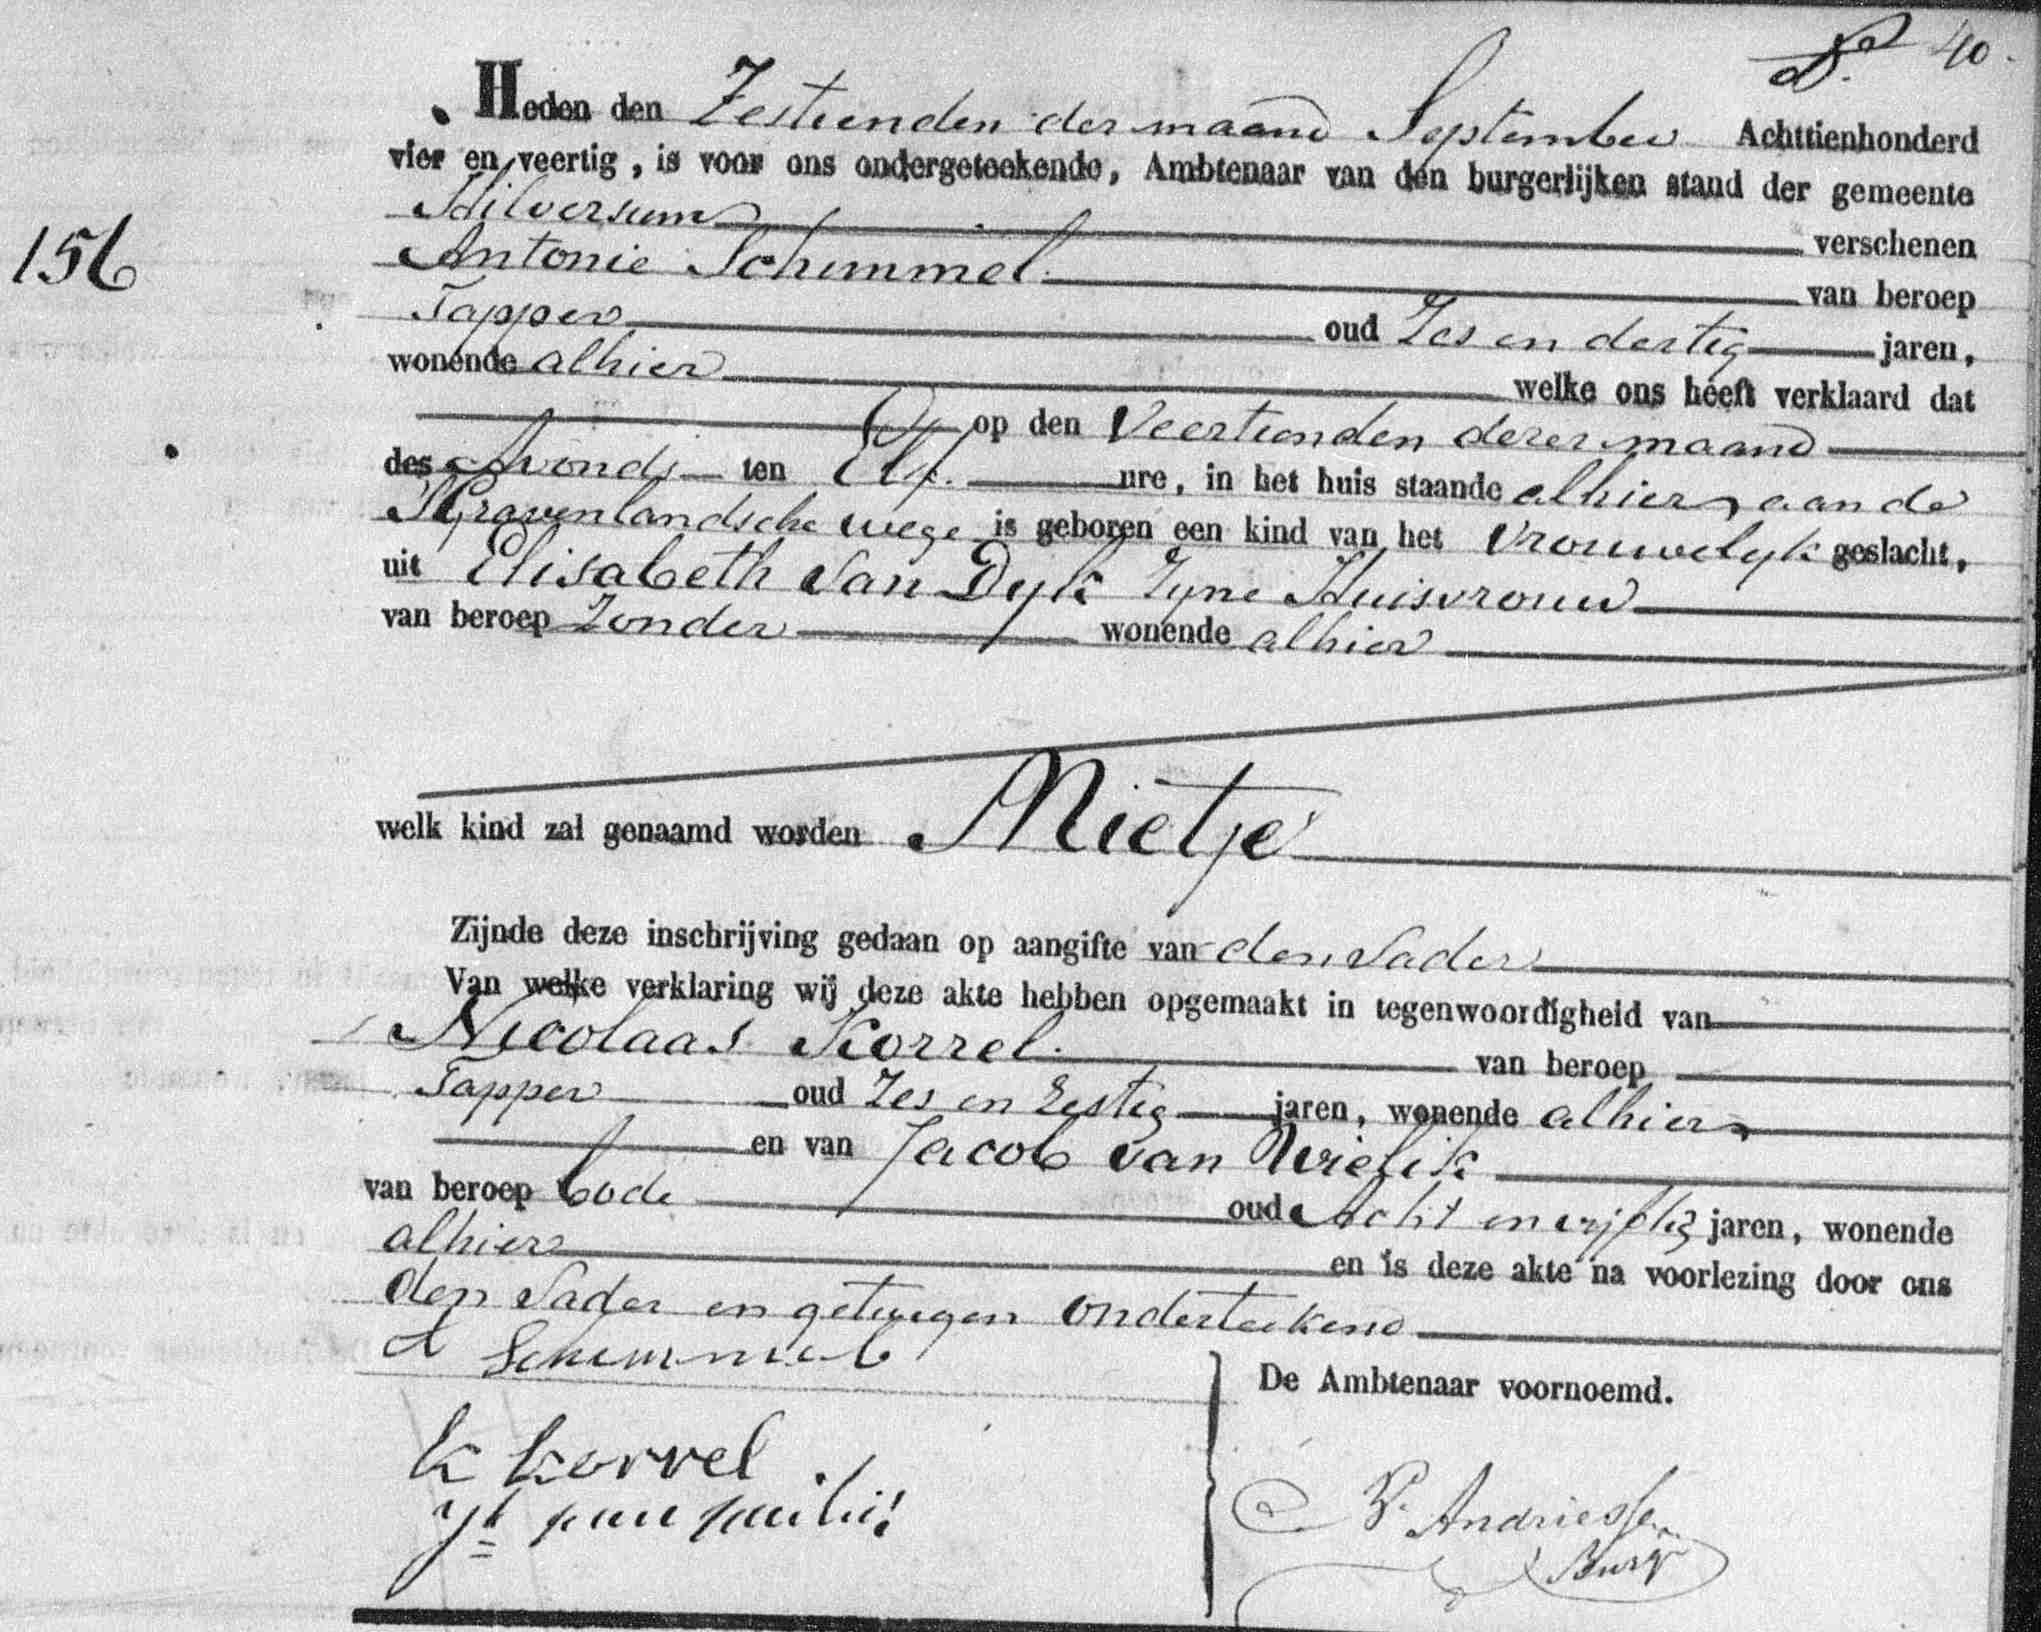 40.
Heden den Zestienden der maand September Achttienhonderd
vier en veertig, is voor ons ondergeteekende, Ambtenaar van den burgerlijken stand der gemeente
Hilversum verschenen
156
Antonie Schimmel van beroep
Tapper oud Zes en dertig jaren,
wonende alhier welke ons heeft verklaard dat
op den Veertienden dezer maand
des Avonds ten Elf ure, in het huis staande alhier, aan de
'sGravenlandsche wege is geboren een kind van het Vrouwelyk geslacht,
uit Elisabeth van Dyk Zyne Huisvrouw
van beroep Zonder wonende alhier
welk kind zal genaamd worden Mietje
Zijnde deze inschrijving gedaan op aangifte van den Vader
Van welke verklaring wij deze akte hebben opgemaakt in tegenwoordigheid van
Nicolaas Korrel van beroep
Tapper oud Zes en Zestig jaren, wonende alhier
en van Jacob van
van beroep bode oud Acht en vijftig jaren, wonende
alhier en is deze akte na voorlezing door ons
den Vader en getuigen onderteekend
A Schimmel
De Ambtenaar voornoemd.
K korrel
P. Andriesse
Burgr